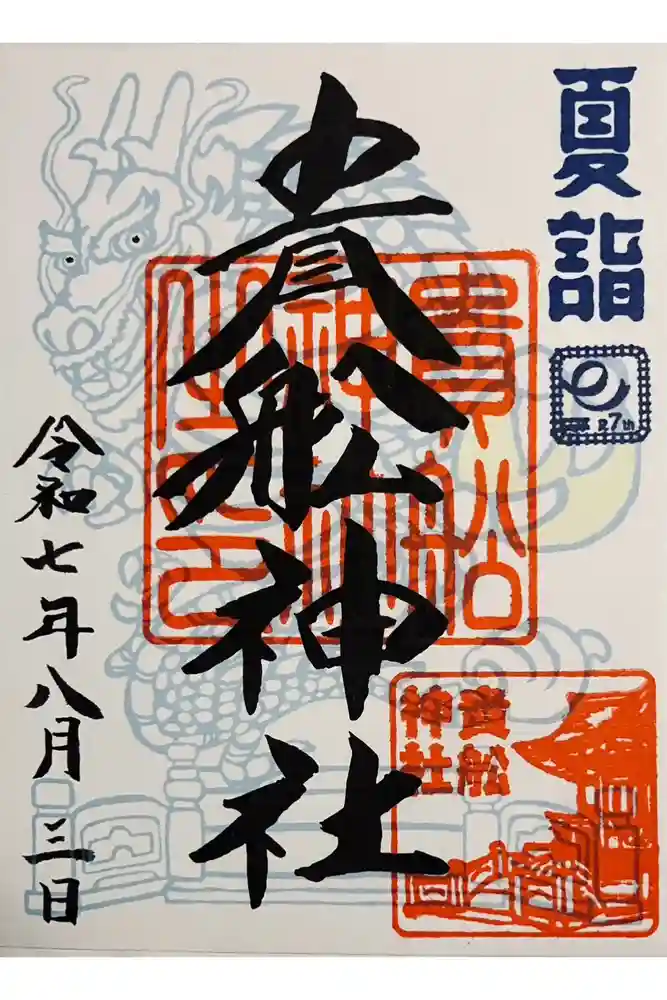 夏詣
R7th
貴船神社
貴船
神社
令和七年八月三日